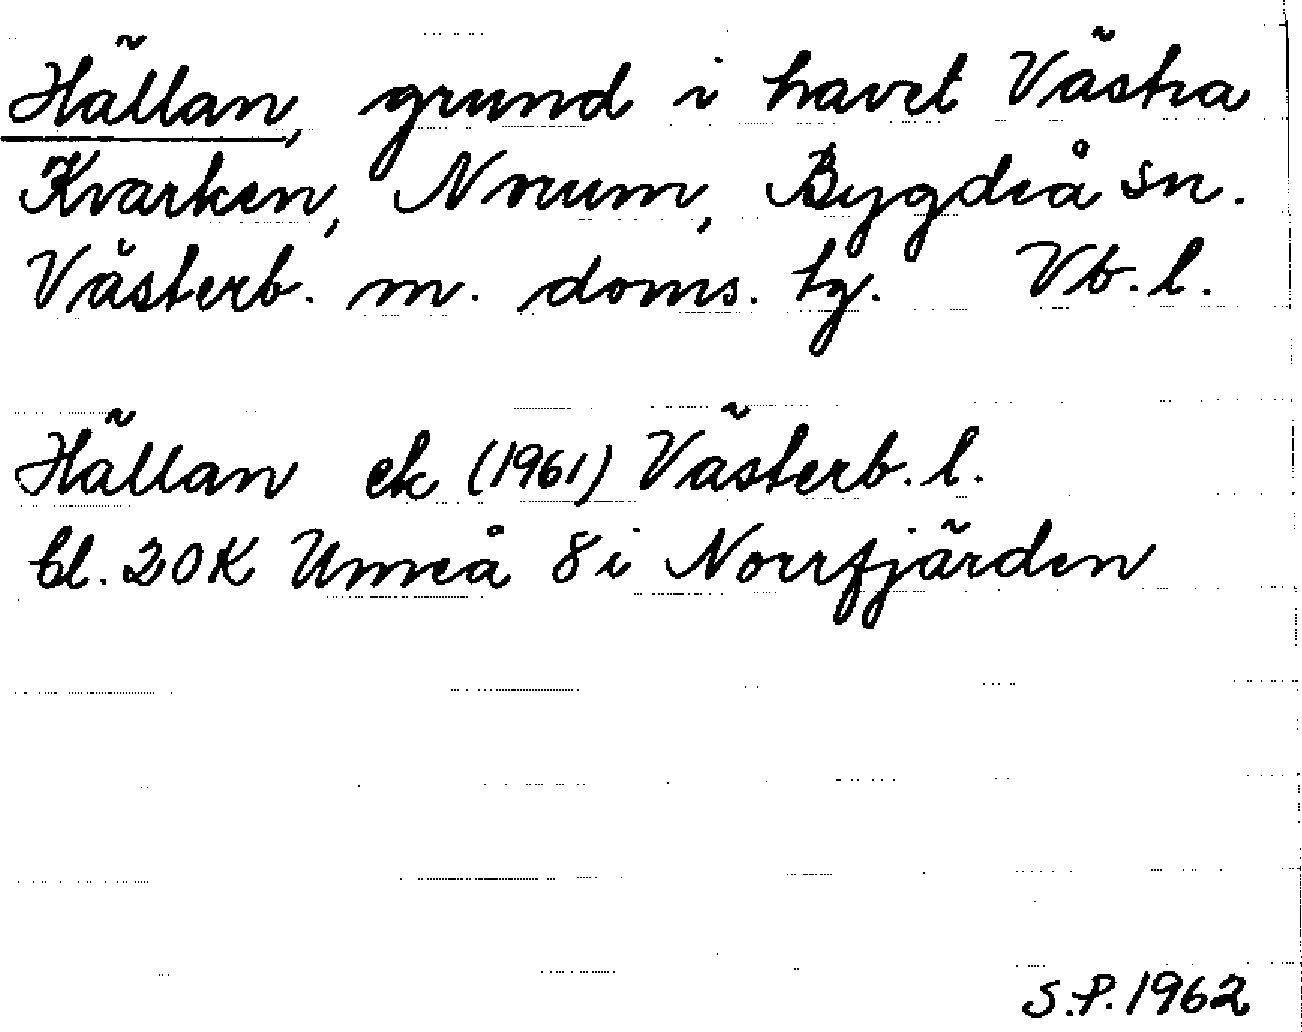 Hällan, grund i havet Västra
Kvarken, Norum, Bygdeå sn.
Västerb. m. doms. tg. Vb. l.
Hällan ek (1961) Västerb. l.
bl. 20K Umeå 8 i Norrfjärden
S.P. 1962